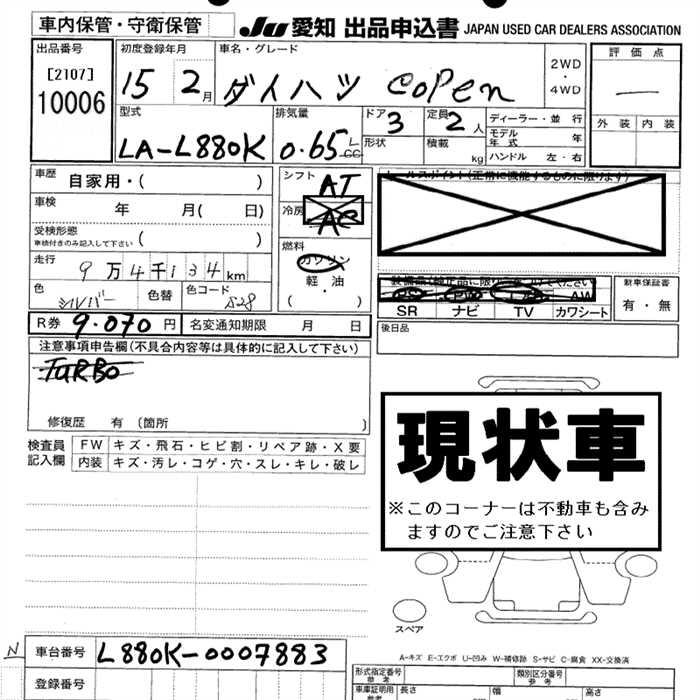 車内保管・守衛保管
JU 愛知 出品申込書 JAPAN USED CAR DEALERS ASSOCIATION
出品番号
[2107]
10006
初度登録年月
15 2月
車名・グレード
ダイハツ copen
2WD
・
4WD
評価点
—
外装 内装
型式
LA-L880K
排気量
0.65 L
CC
ドア 3
形状
定員 2人
積載 kg
ディーラー・並行
モデル年式 年
ハンドル 左・右
車歴
自家用・( )
車検
年 月( 日)
受検形態
車検付きのみ記入して下さい ( )
走行
9万4千134km
色
シルバー
色替
色コード
S28
シフト
AT
冷房
AC
燃料
ガソリン
軽油
( ・ )
セールスポイント(正常に機能するものに限ります)
SR ナビ TV カワシート
AW
新車保証書
有・無
後日品
R券 9.070円
名変通知期限 月 日
注意事項申告欄(不具合内容等は具体的に記入して下さい)
TURBO
修復歴 有(箇所 )
検査員
記入欄
FW キズ・飛石・ヒビ割・リペア跡・X要
内装 キズ・汚レ・コゲ・穴・スレ・キレ・破レ
現状車
※このコーナーは不動車も含み
ますのでご注意下さい
スペア
A-キズ E-エクボ U-凹み W-補修跡 S-サビ C-腐食 XX-交換済
N
車台番号 L880K-0007883
登録番号
形式指定番号
参考
類別区分番号
参考
車庫証明用
参考
長さ 幅 高さ